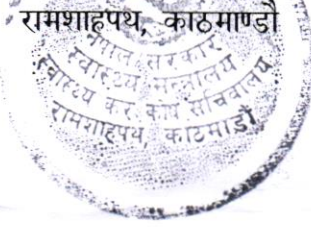 रामशाहपथ, काठमाण्डौ
नेपाल सरकार
स्वास्थ्य मन्त्रालय
स्वास्थ्य कर कोष सचिवालय
रामशाहपथ, काठमाडौं